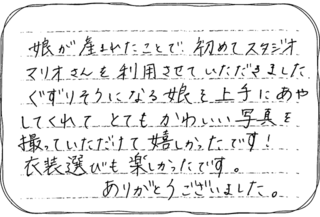 娘が産まれたことで 初めてスタジオ
マリオさんを利用させていただきました
ぐずりそうになる娘を上手にあや
してくれて とてもかわいい写真を
撮っていただけて嬉しかったです!
衣装選びも楽しかったです。
ありがとうございました。